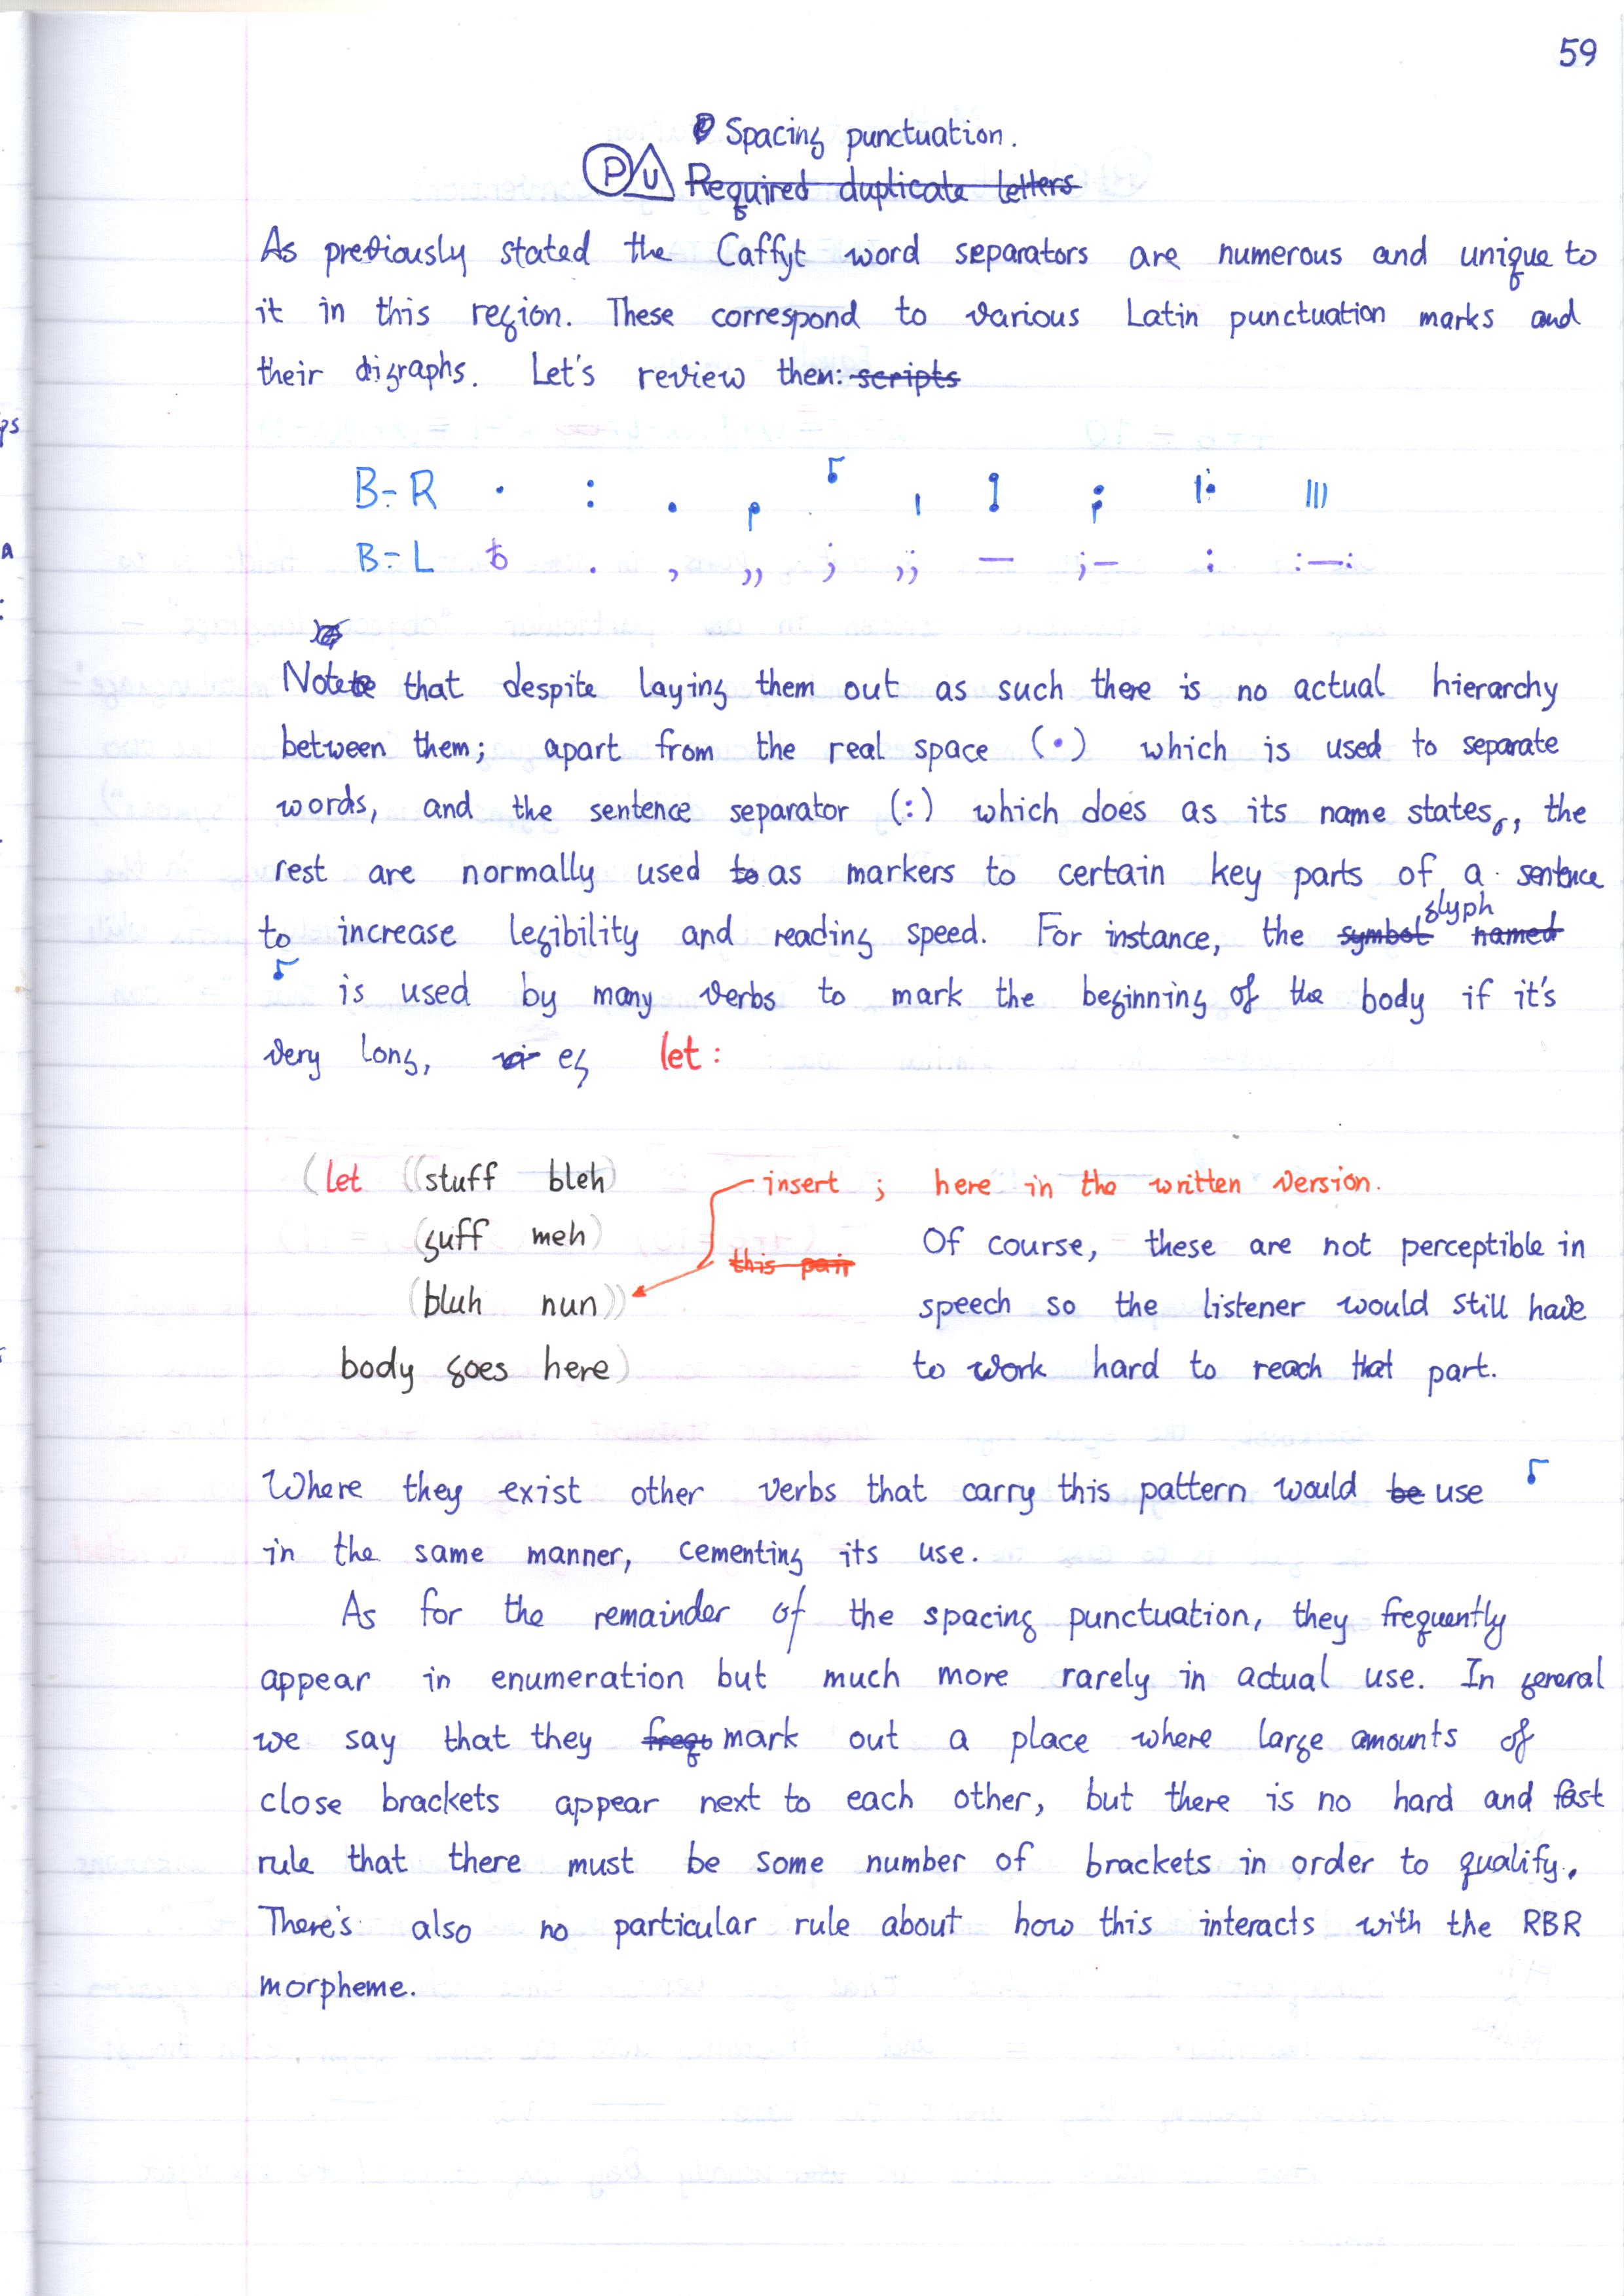 59
Spacing punctuation.
PU Required duplicate letters
As previously stated the Caffyt word separators are numerous and unique to
it in this region. These correspond to various Latin punctuation marks and
their digraphs. Let's review them: scripts
B-R · : . , ╷ ; |||
B-L ␢ . , ,, ; ;; — ;— : :—:
Note that despite laying them out as such there is no actual hierarchy
between them; apart from the real space (·) which is used to separate
words, and the sentence separator (:) which does as its name states, the
rest are normally used to as markers to certain key parts of a sentence
to increase legibility and reading speed. For instance, the symbol glyph named
is used by many verbs to mark the beginning of the body if it's
very long, eg let:
(let ((stuff bleh)
(guff meh)
(bluh nun))
body goes here)
insert ; here in the written version.
this pair
Of course, these are not perceptible in
speech so the listener would still have
to work hard to reach that part.
Where they exist other verbs that carry this pattern would be use
in the same manner, cementing its use.
As for the remainder of the spacing punctuation, they frequently
appear in enumeration but much more rarely in actual use. In general
we say that they freq mark out a place where large amounts of
close brackets appear next to each other, but there is no hard and fast
rule that there must be some number of brackets in order to qualify.
There's also no particular rule about how this interacts with the RBR
morpheme.